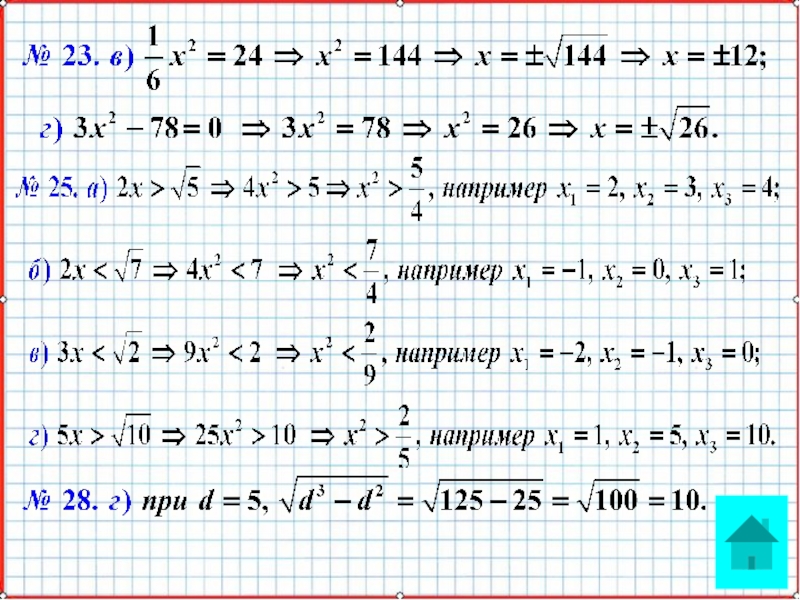 № 23. в) 1/6 x² = 24 ⇒ x² = 144 ⇒ x = ±√144 ⇒ x = ±12;
г) 3x² − 78 = 0 ⇒ 3x² = 78 ⇒ x² = 26 ⇒ x = ±√26.
№ 25. а) 2x > √5 ⇒ 4x² > 5 ⇒ x² > 5/4, например x₁ = 2, x₂ = 3, x₃ = 4;
б) 2x < √7 ⇒ 4x² < 7 ⇒ x² < 7/4, например x₁ = −1, x₂ = 0, x₃ = 1;
в) 3x < √2 ⇒ 9x² < 2 ⇒ x² < 2/9, например x₁ = −2, x₂ = −1, x₃ = 0;
г) 5x > √10 ⇒ 25x² > 10 ⇒ x² > 2/5, например x₁ = 1, x₂ = 5, x₃ = 10.
№ 28. г) при d = 5, √(d³ − d²) = √(125 − 25) = √100 = 10.